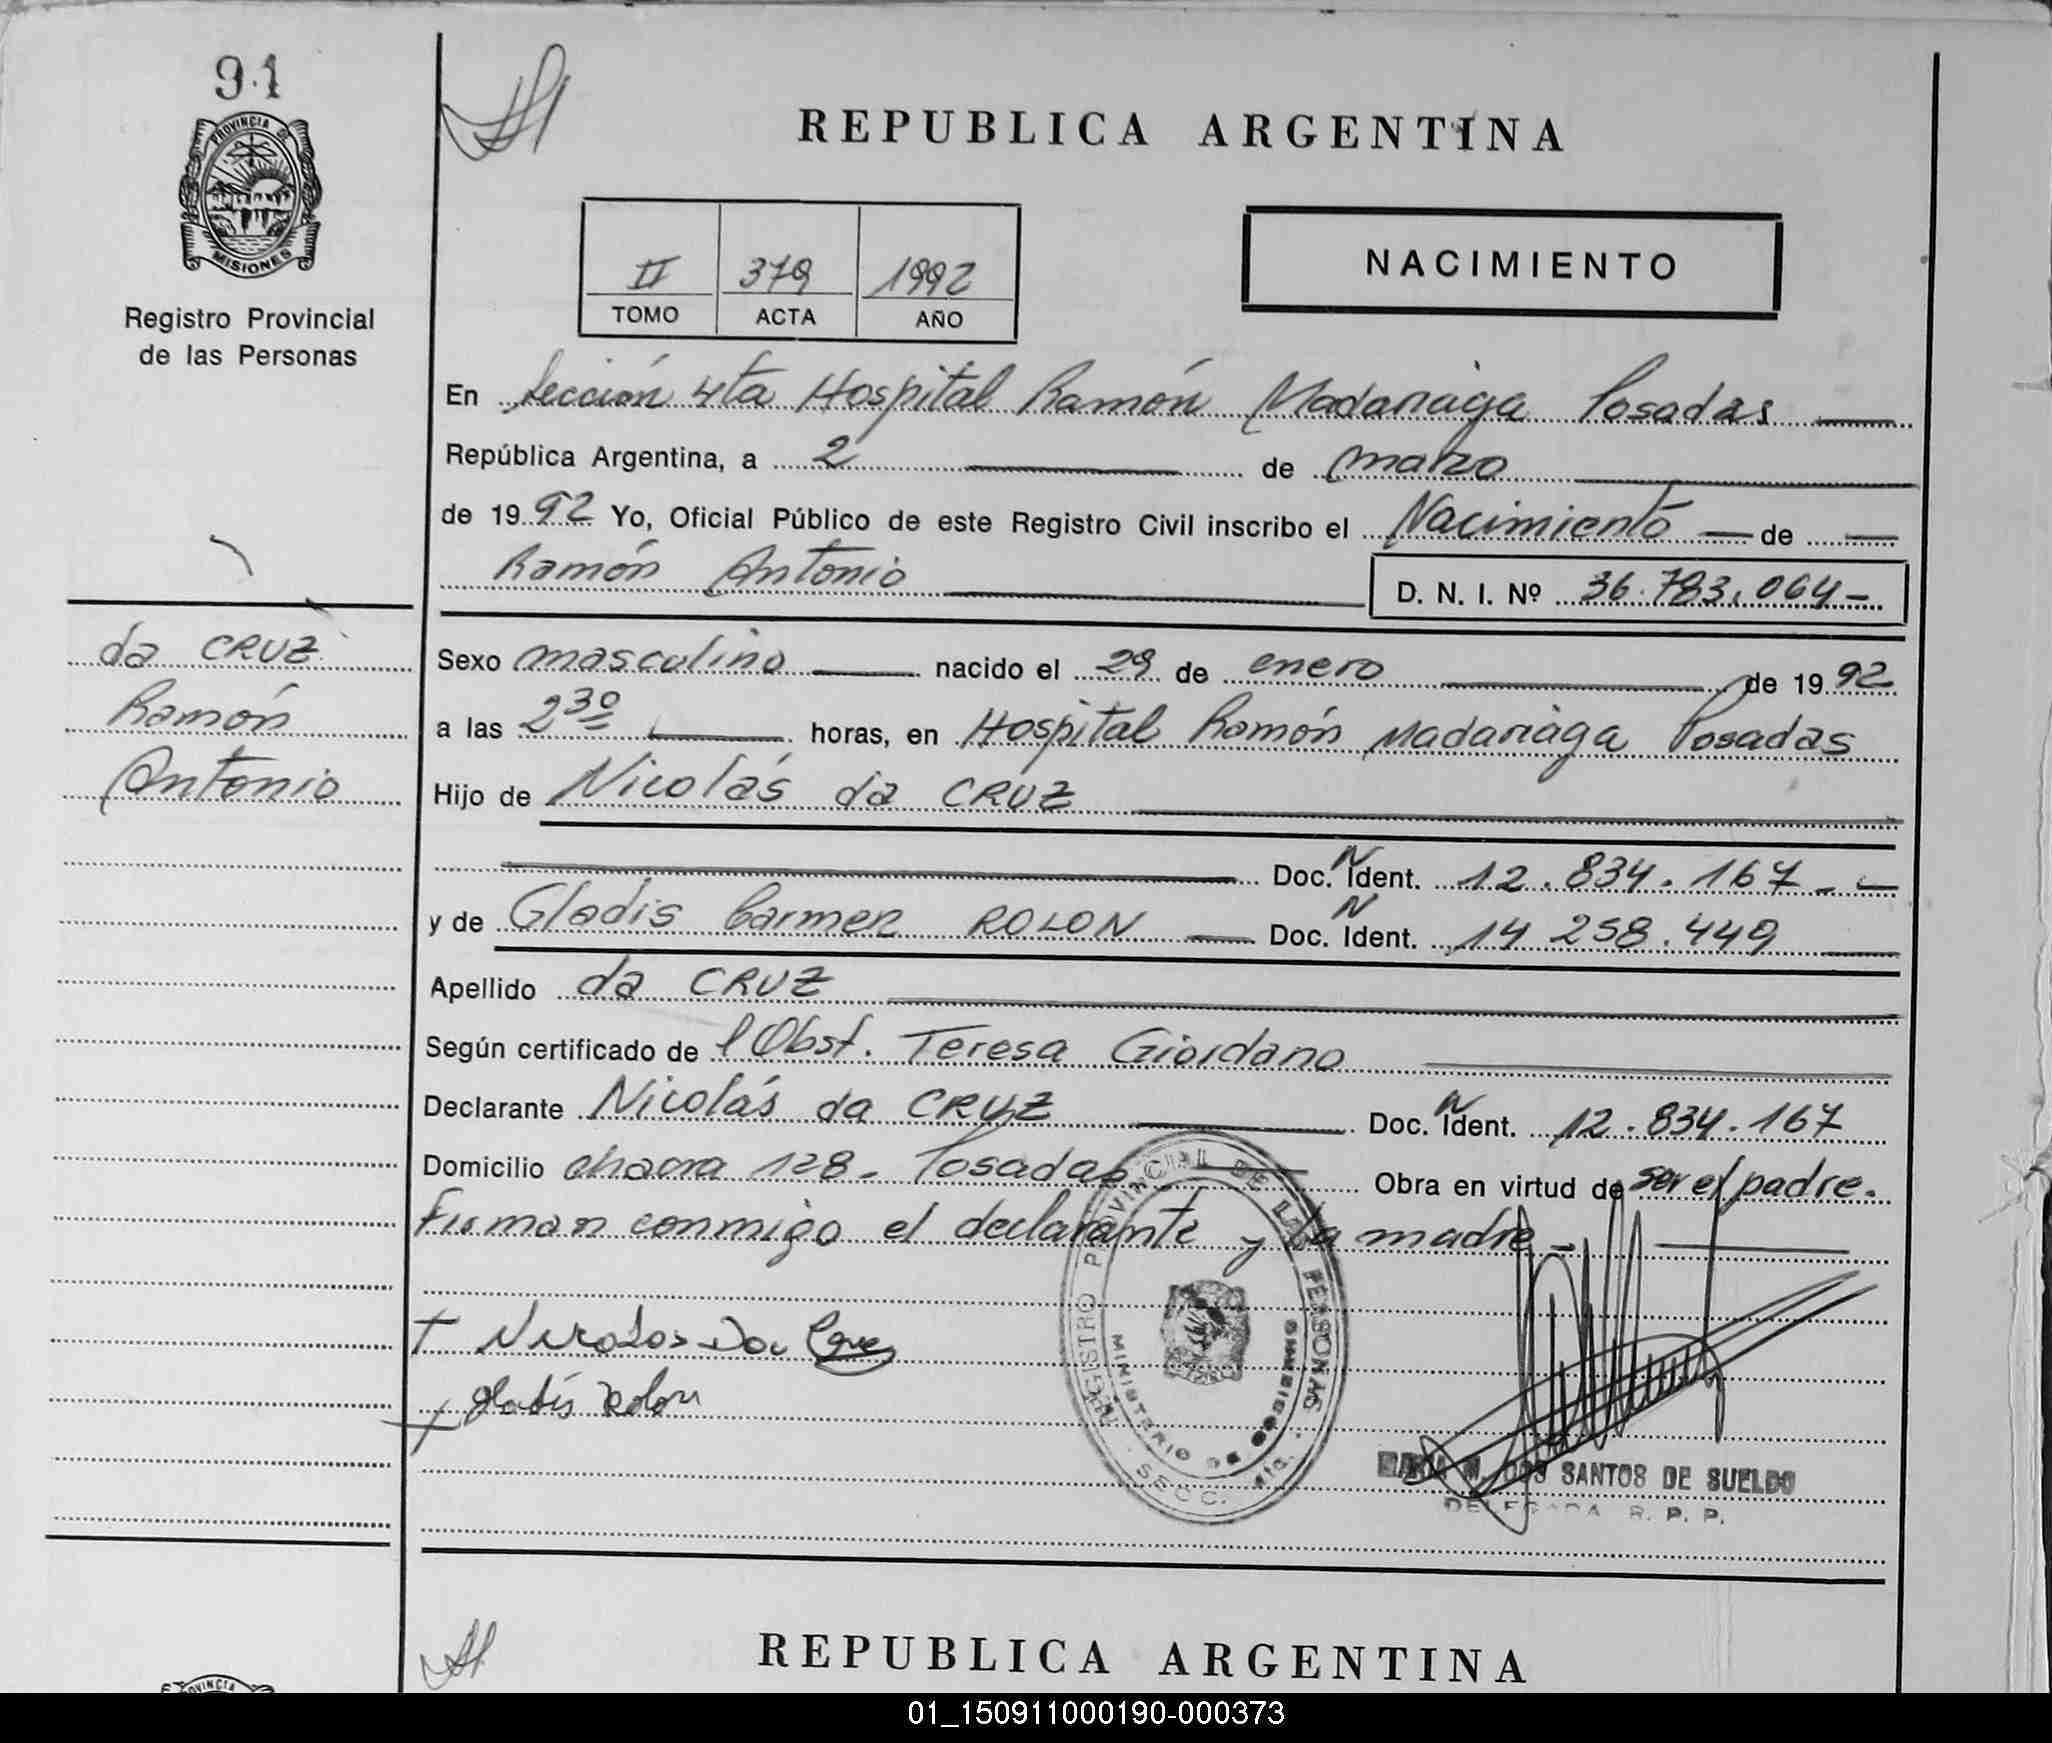 91
PROVINCIA DE
MISIONES
Registro Provincial
de las Personas
REPUBLICA ARGENTINA
II 379 1992
TOMO ACTA AÑO
NACIMIENTO
En Sección 4ta Hospital Ramón Madariaga Posadas
República Argentina, a 2 de marzo
de 1992 Yo, Oficial Público de este Registro Civil inscribo el Nacimiento de
Ramón Antonio
D. N. I. Nº 36.783.064-
da CRUZ
Ramón
Antonio
Sexo masculino nacido el 29 de enero de 1992
a las 2 30 horas, en Hospital Ramón Madariaga Posadas
Hijo de Nicolás da CRUZ
Doc. N Ident. 12.834.167
y de Gladis Carmen ROLON Doc. N Ident. 14 258.449
Apellido da CRUZ
Según certificado de l Obst. Teresa Giordano
Declarante Nicolás da CRUZ Doc. N Ident. 12.834.167
Domicilio chacra 128- Posadas Obra en virtud de ser el padre.
Firman conmigo el declarante y la madre-
Nicolas Da Cruz
Gladis Rolon
REGISTRO PROVINCIAL DE LAS PERSONAS
MINISTERIO DE GOBIERNO
SECC. 4ta.
MARIA M. DOS SANTOS DE SUELDO
DELEGADA R. P. P.
REPUBLICA ARGENTINA
PROVINCIA
01_150911000190-000373